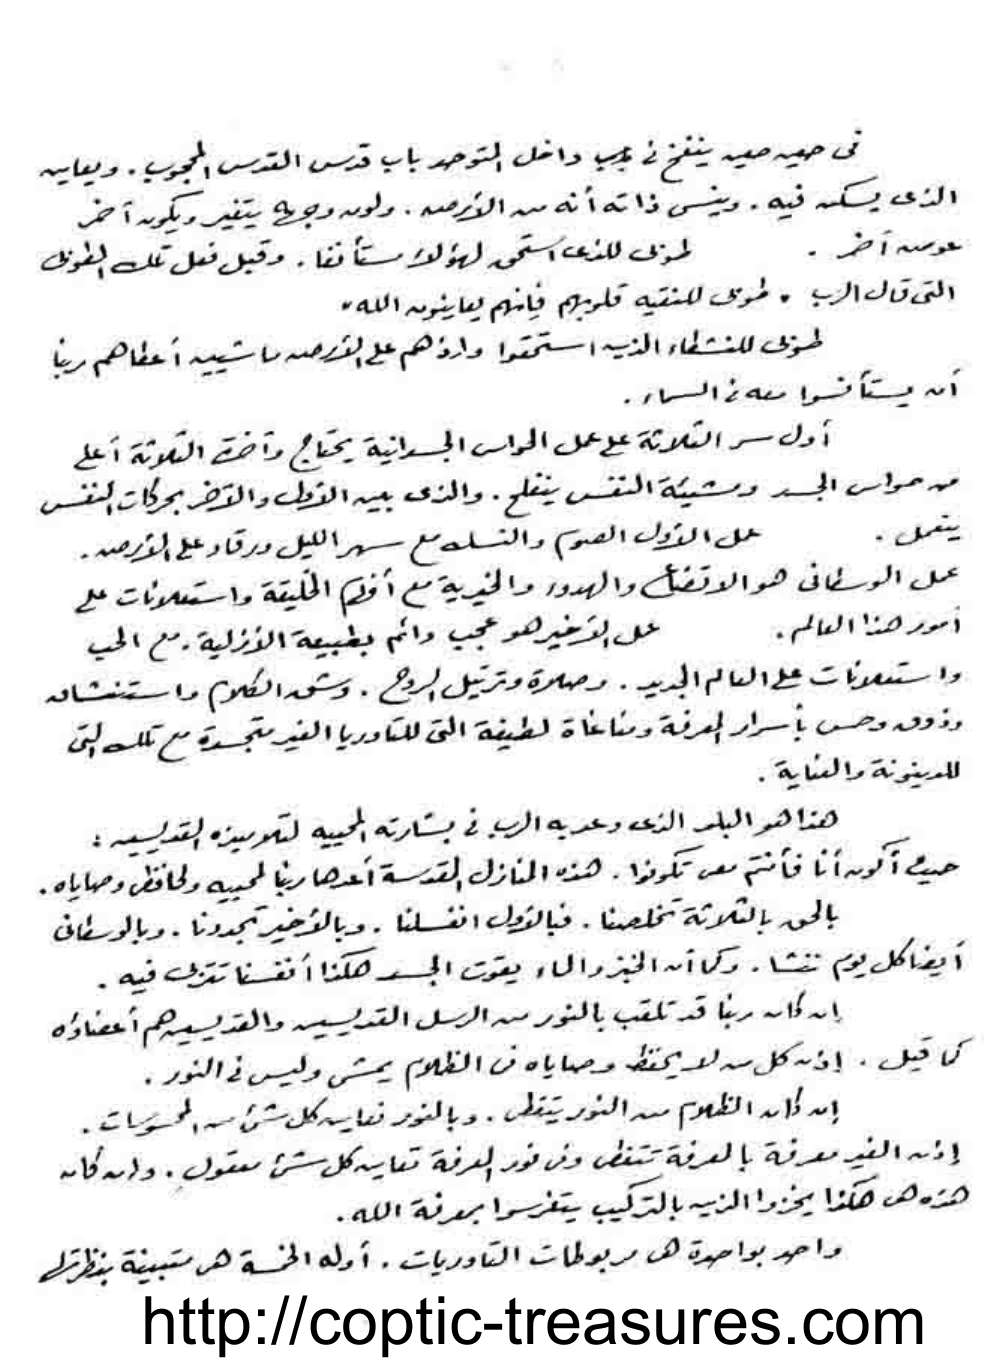 فى حين حين ينفتح فى داخل المتوحد باب قدس القدس المحجوب . ويعاين
الذى يسكن فيه . وينسى ذاته أنه من الأرض . ولون وجهه يتغير ويكون آخر
عوض آخر . طوبى للذى استحق لهؤلاء مستأنفا . وقيل فعل تلك الطوبى
التى قال الرب " طوبى للنقيه قلوبهم فإنهم يعاينون الله "
طوبى للنشطاء الذين استحقوا وإذ هم على الأرض ماشيين أعطاهم ربنا
أن يستأنسوا معه فى السماء .
أول سر الثلاثة على عمل الحواس الجسدانية يحتاج وآخرة الثلاثة أعلى
من حواس الجسد ومشيئة النفس ينفلح . والذى بين الأول والآخر بحركات النفس
ينعمل . عمل الأول الصوم والنسك مع سهر الليل ورقاد على الأرض .
عمل الوسطانى هو الاتضاع والهدوء والخيرية مع أفهام الخليقة واستعلانات على
أمور هذا العالم . عمل الأخير هو عجب دائم بطبيعة الأزلية . مع الحب
واستعلانات على العالم الجديد . وصلاة وترتيل الروح . وشم الكلام واستنشاق
وذوق وحس بأسرار المعرفة ومناغاة لطيفة التى للتاوريا الغير متجسدة مع تلك التى
للدينونة والعناية .
هذا هو البلد الذى وعد به الرب فى بشارته المحييه لتلاميذه القديسين :
حيث أكون أنا فأنتم معى تكونوا . هذه المنازل المقدسة أعدها ربنا لمحبيه ولحافظى وصاياه .
بالحق بالثلاثة تخلصنا . فبالأول انغسلنا . وبالأخير تجددنا . وبالوسطانى
أيضا كل يوم ننشا . وكما أن الخبز والماء يقوت الجسد هكذا أنفسنا تتربى فيه .
إن كان ربنا قد تلقب بالنور من الرسل القديسين والقديسين هم أعضاؤه
كما قيل . إذن كل من لا يحفظ وصاياه فى الظلام يمشى وليس فى النور .
إن كان الظلام من النور يتغطى . وبالنور نعاين كل شئ من المحسوسات .
إذن الغير معرفة بالمعرفة تتغطى وفى نور المعرفة تعاين كل شئ معقول . وإن كان
هذه هى هكذا يخزوا الذين بالتركيب يتفرسوا بمعرفة الله .
واحد بواحدة هى مربوطات التاوريات . أوله الخمسة هى متبينة بنظرتها
http://coptic-treasures.com